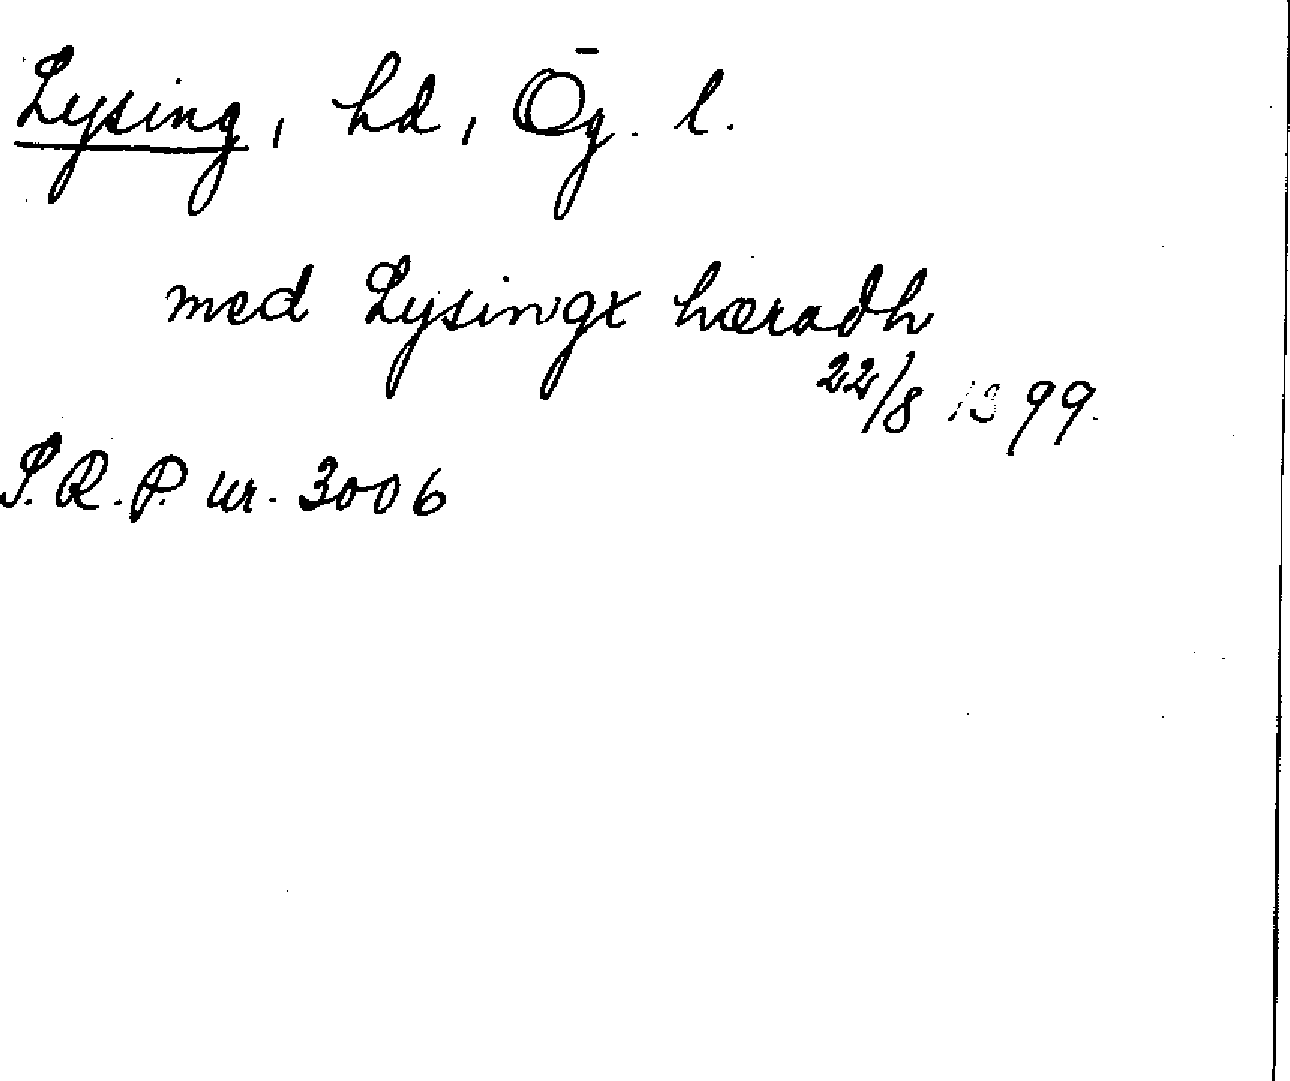 Lysing, hd, Ög. l.
med Lysingx hæradh
22/8 1399.
S.R.P. nr. 3006